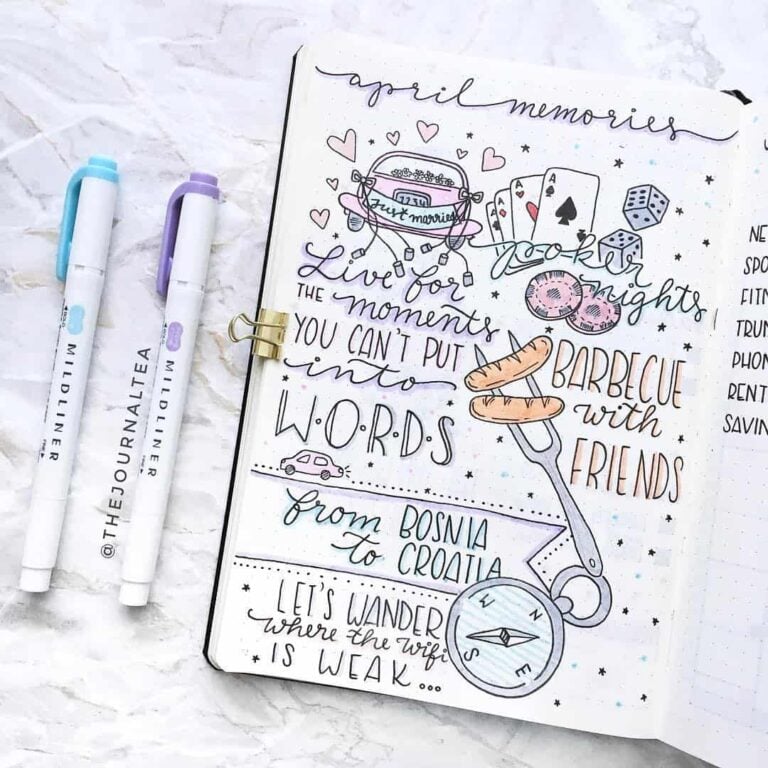 april memories
1234
Just married
A A A A
poker
nights
Live for
THE moments
YOU CAN'T PUT
into
W·O·R·D·S
BARBECUE
with
FRIENDS
from BOSNIA
to CROATIA
LET'S WANDER
where the wifi
IS WEAK...
N
E
S
W
MILDLINER
MILDLINER
@THEJOURNALTEA
NE
SPO
FITN
TRUN
PHON
RENT
SAVIN